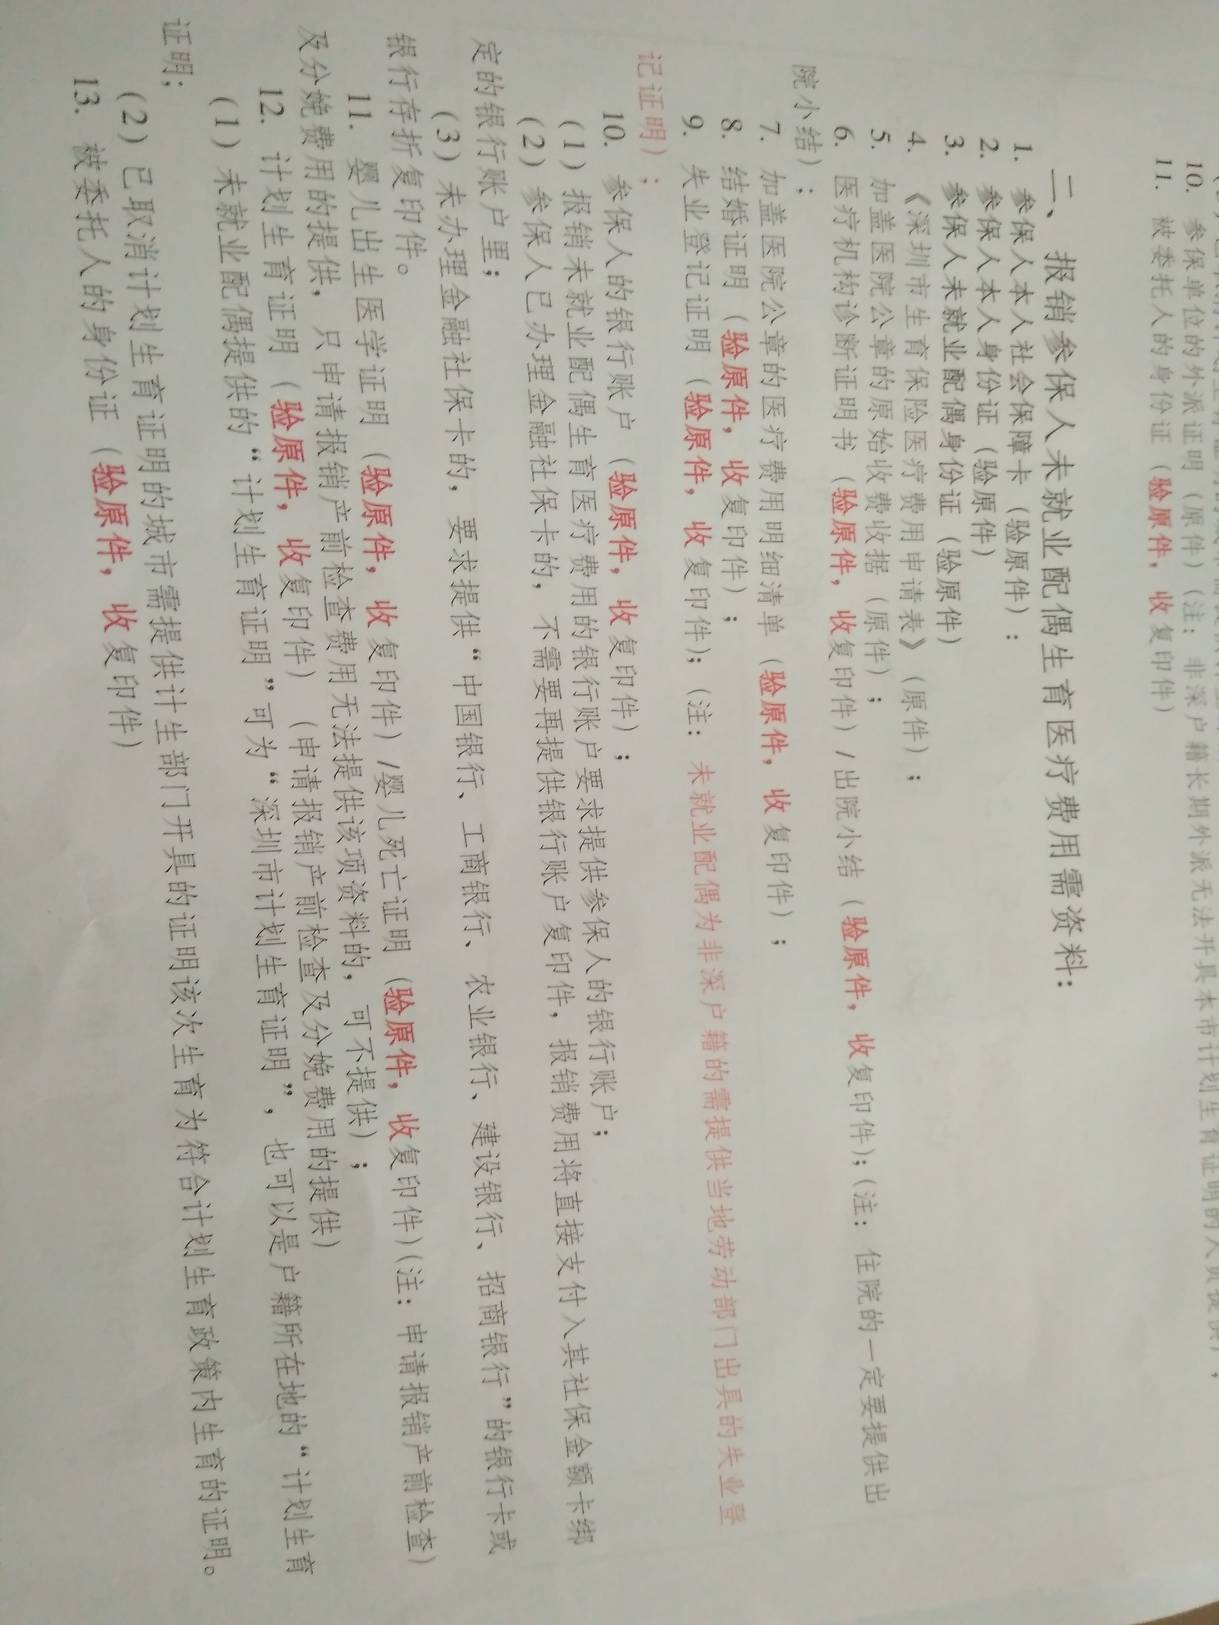 10. 参保单位的外派证明（原件）（注：非深户籍长期外派无法开具本市计划生育证明的人员提供）；
11. 被委托人的身份证（验原件，收复印件）
二、报销参保人未就业配偶生育医疗费用需资料：
1. 参保人本人社会保障卡（验原件）：
2. 参保人本人身份证（验原件）
3. 参保人未就业配偶身份证（验原件）
4. 《深圳市生育保险医疗费用申请表》（原件）；
5. 加盖医院公章的原始收费收据（原件）；
6. 医疗机构诊断证明书（验原件，收复印件）/出院小结（验原件，收复印件）；（注：住院的一定要提供出
院小结）；
7. 加盖医院公章的医疗费用明细清单（验原件，收复印件）；
8. 结婚证明（验原件，收复印件）；
9. 失业登记证明（验原件，收复印件）；（注：未就业配偶为非深户籍的需提供当地劳动部门出具的失业登
记证明）；
10. 参保人的银行账户（验原件，收复印件）；
（1）报销未就业配偶生育医疗费用的银行账户要求提供参保人的银行账户；
（2）参保人已办理金融社保卡的，不需要再提供银行账户复印件，报销费用将直接支付入其社保金额卡绑
定的银行账户里；
（3）未办理金融社保卡的，要求提供“中国银行、工商银行、农业银行、建设银行、招商银行”的银行卡或
银行存折复印件。
11. 婴儿出生医学证明（验原件，收复印件）/婴儿死亡证明（验原件，收复印件）（注：申请报销产前检查）
及分娩费用的提供，只申请报销产前检查费用无法提供该项资料的，可不提供）；
12. 计划生育证明（验原件，收复印件）（申请报销产前检查及分娩费用的提供）
（1）未就业配偶提供的“计划生育证明”可为“深圳市计划生育证明”，也可以是户籍所在地的“计划生育
证明；
（2）已取消计划生育证明的城市需提供计生部门开具的证明该次生育为符合计划生育政策内生育的证明。
13. 被委托人的身份证（验原件，收复印件）